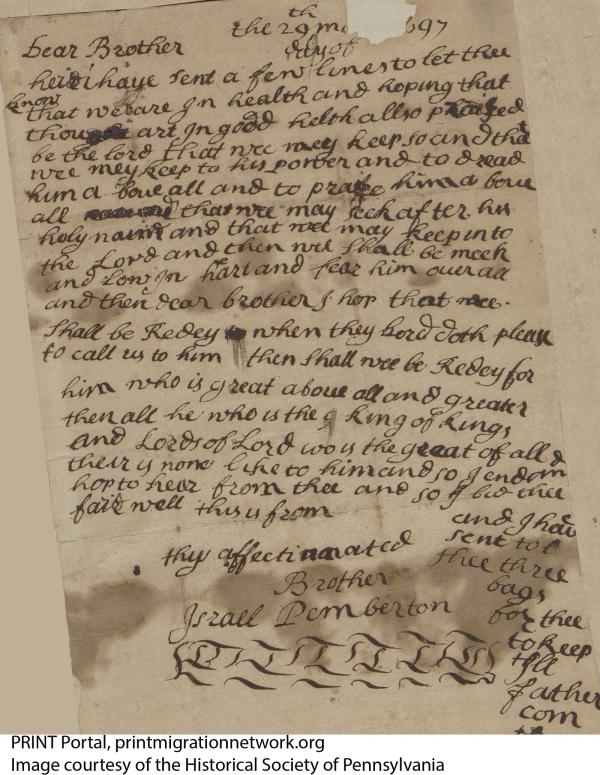 the 29th mo 697
day of
Dear Brother
heir i haye sent a few lines to let thee
know that we are In health and hoping that
thou art In good helth allso pleased
be the lord that wee mey keep so and tha
wee mey keep to his power and to dread
him a boue all and to praise him a boue
all that wee may seek after his
holy naim and that wee may keep into
the Lord and then wee shall be meek
and Low In hart and fear him ouer all
and then dear brother I hop that wee
shall be Redey when they lord doth please
to call us to him then shall wee be Redey for
him who is great aboue all and greater
then all he who is the king of kings
and Lords of Lord wo is the great of all &
their is none like to him and so I end
hop to heer from thee and so I bid thee
faire well this is from
thy affectinnated
Brother
Israel Pemberton
and I hau
sent to t
thee three
bags
for thee
to keep
till
father
com
PRINT Portal, printmigrationnetwork.org
Image courtesy of the Historical Society of Pennsylvania